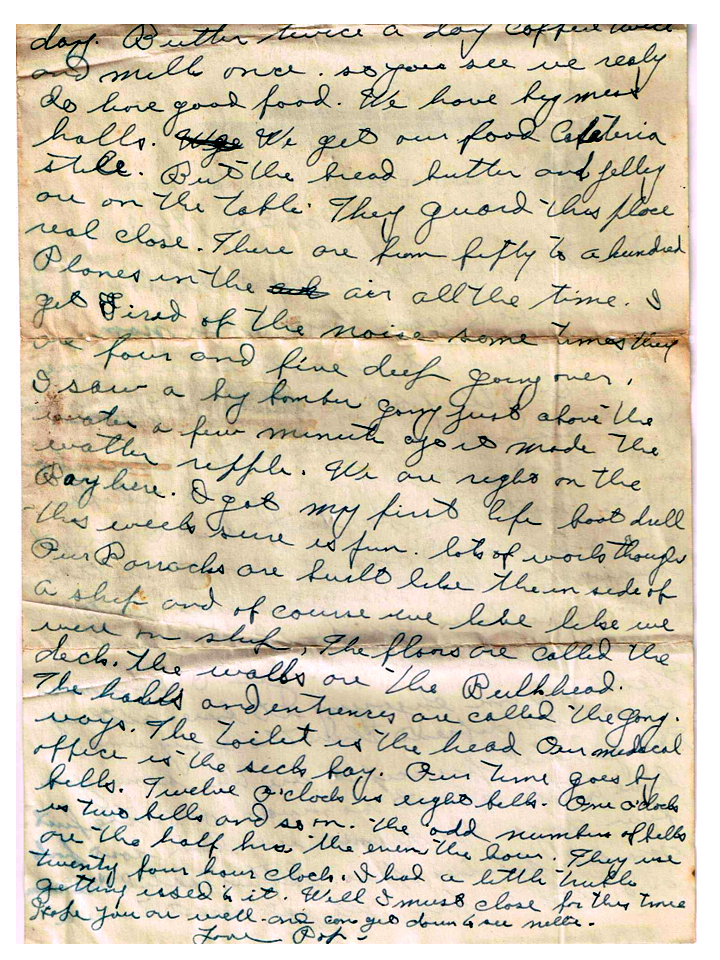 day. Butter twice a day coffee twice
and milk once. so you see we realy
do have good food. We have big mess
halls. We get our food Cafateria
stile. But the bread butter and jelley
are on the table. They guard this place
real close. There are from fifty to a hundred
Planes in the air all the time. I
get Tired of the noise some times they
are four and five deep going over.
I saw a big bomber going just above the
water a few minute ago it made the
watter ripple. We are right on the
Bay here. I got my first life boat drill
this week sure is fun. lots of work though
Our Barracks are built like the in side of
a ship and of course we live like we
were on ship. The floors are called the
deck. The walls are the Bulkhead.
The halls and entrences are called the gang.
ways. The toilet is the head Our medical
office is the sick bay. Our time goes by
bells. Twelve o'clock is eight bells. One o'clock
is two bells and so on. the odd numbers of bells
are the half hrs the even the hour. They use
twenty four hour clock. I had a little
getting used to it. Well I must close for this time
Hope you are well and can get down to see nellie.
Love Pop.